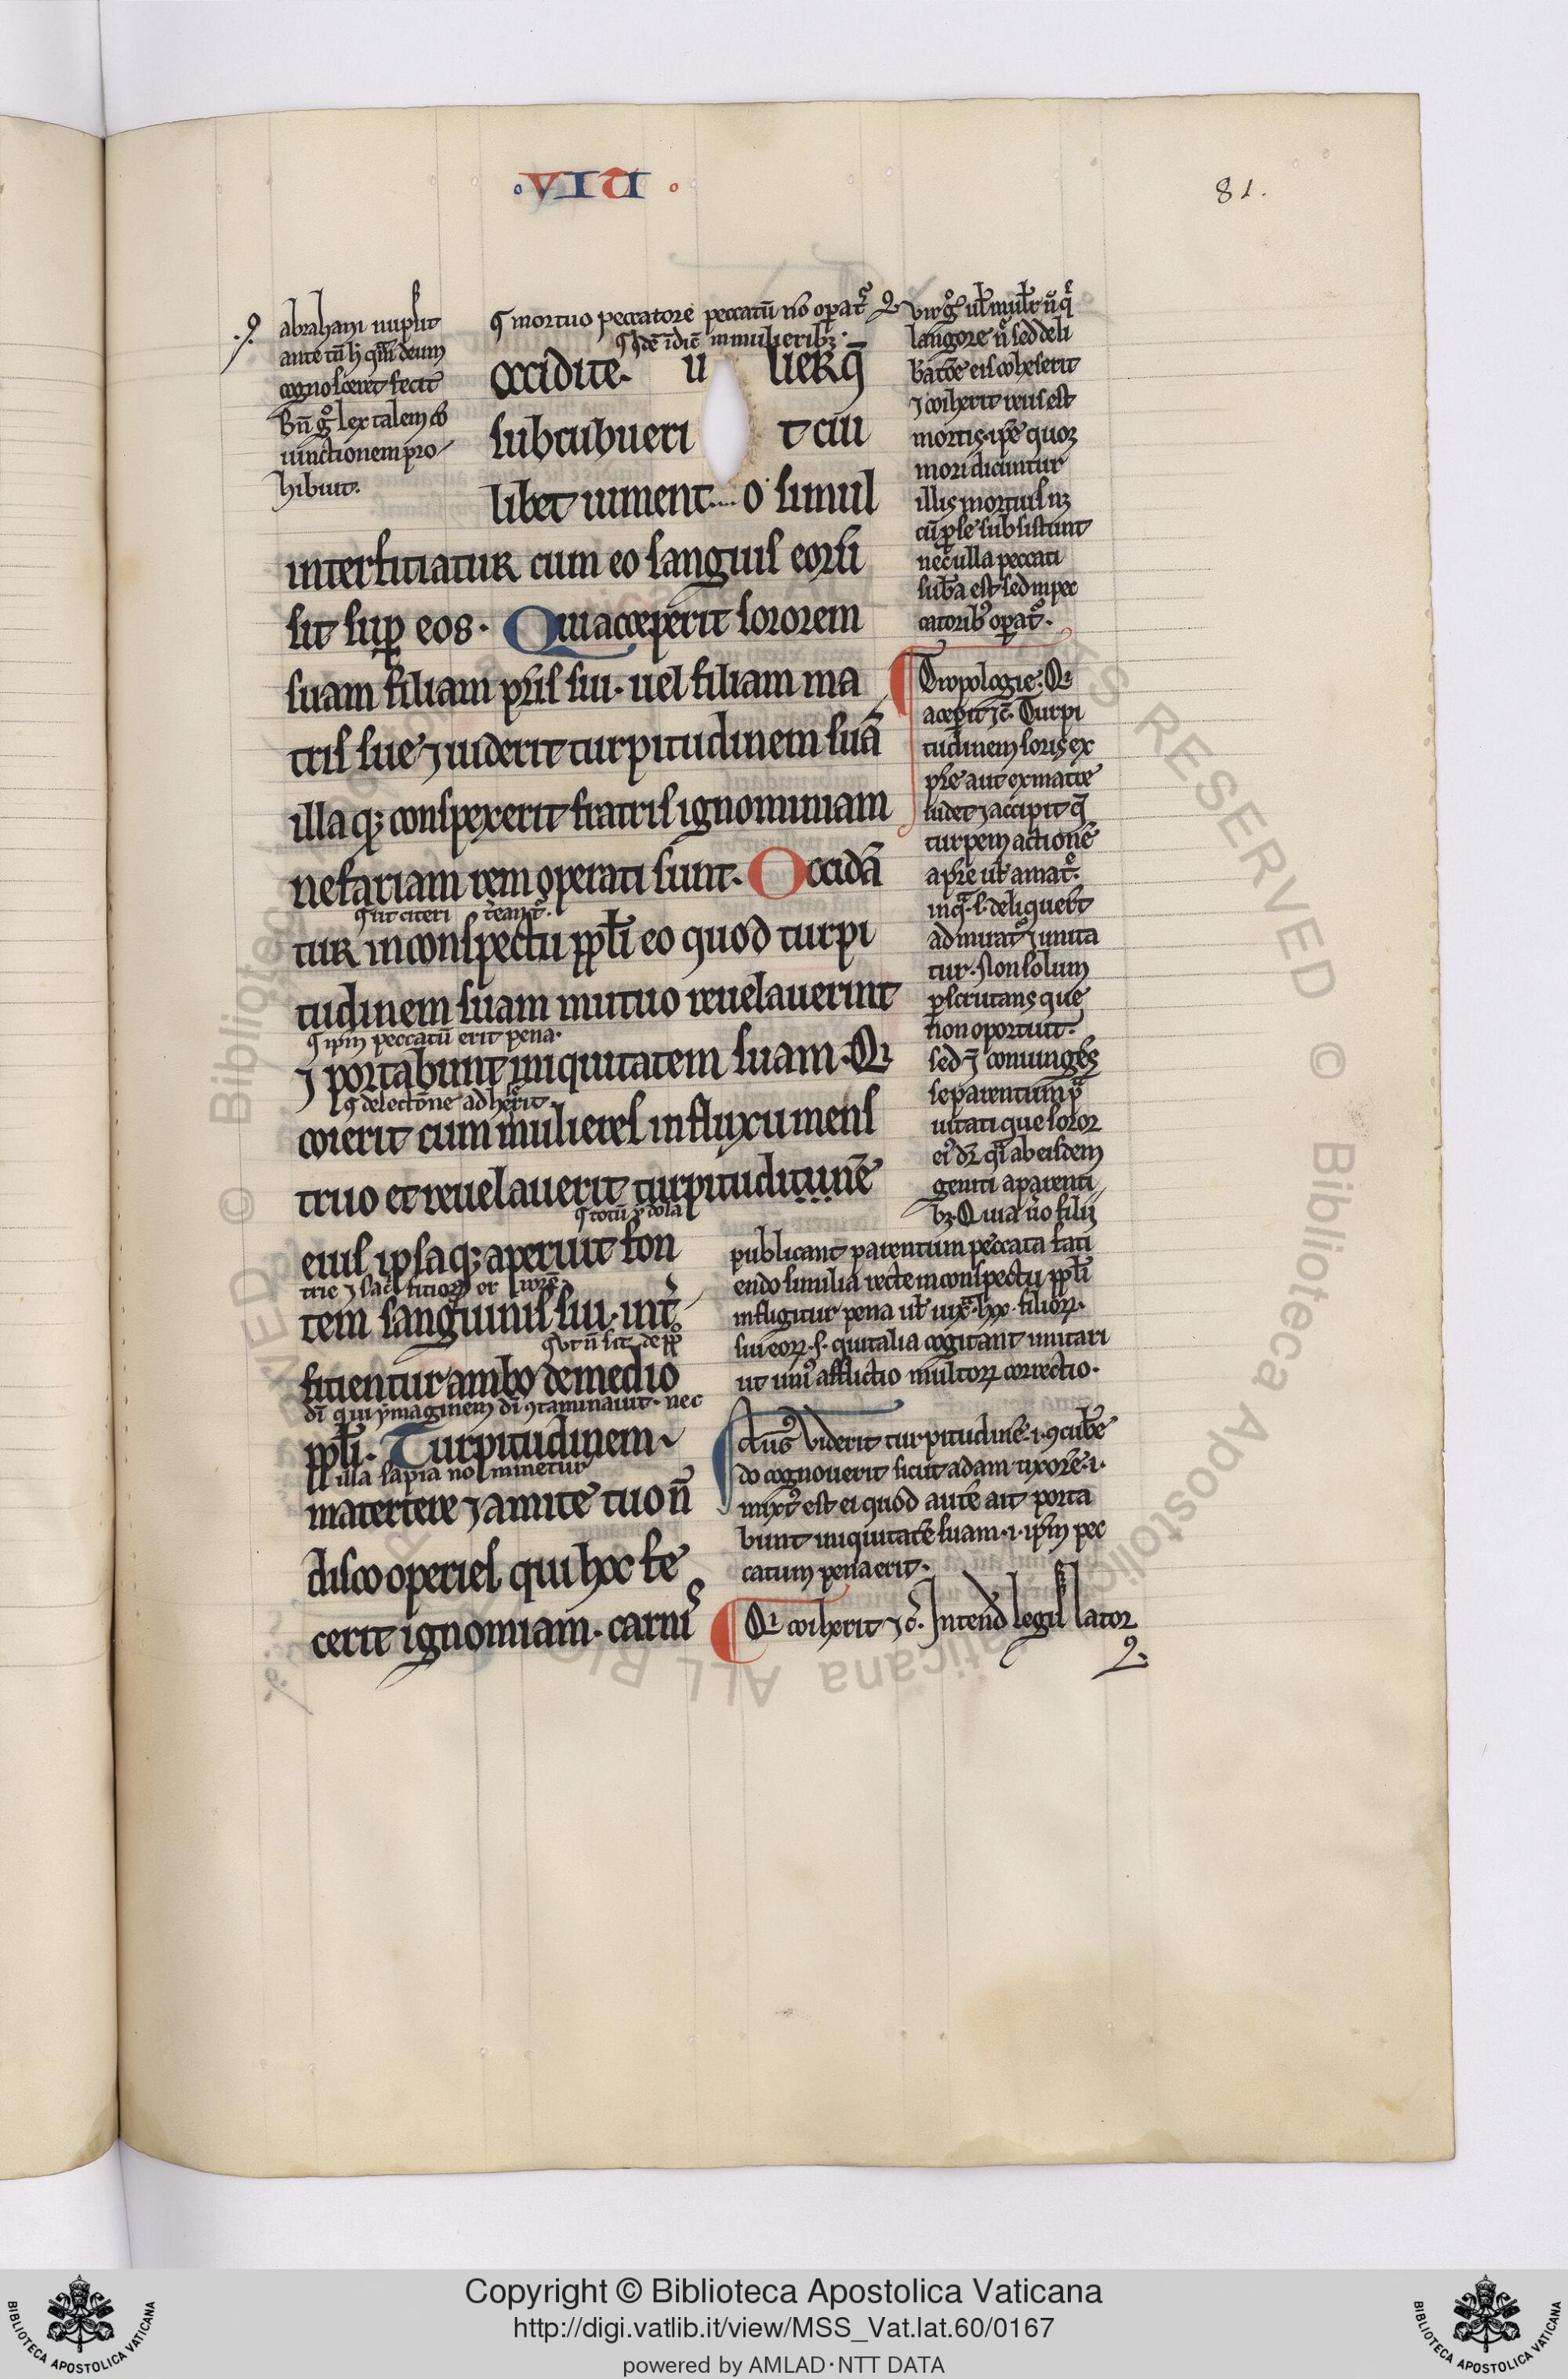 ·VIU·
81.
abraham nupsit
ante tū hͥ qͣm deum
cognosceret fecit
lex talem cō
iunctionem pro
hibuit.
mortuo peccatore peccatū nō opatᷣ
idē in mulieribꝫ.
occidite. u lierq̄
subcubueri t cui
libet iument o simul
interfitiatur cum eo sanguis eorū
sit suꝑ eos. Qui acceperit sororem
suam filiam pr̄is sui. uel filiam ma
tris sue ⁊ uiderit turpitudinem suā
illaqꝫ conspexerit fratris ignominiam
nefariam rem operati sunt. Occidā
¶ ut citeri t̄eantᷣ.
tur in conspectu ppl̄i eo quod turpi
tudinem suam mutuo reuelauerint
¶ ipm̄ peccatū erit pena.
⁊ portabunt iniquitatem suam. Qi
¶ delectōne adheserit.
coierit cum mulieres in fluxu mens
truo et reuelauerit turpituditunē
¶ totū
eius ipsaqꝫ aperuit fon
tem sanguinis sui. intͥ
¶ Vt n̄ sit de pplō
ficientur ambo de medio
dī qui ymaginem dī ꝯtaminauit. nec
ppl̄i. Turpitudinem
illa sapia no minetur
matertere ⁊ amite tuo n̄
discooperies qui hoc fe
cerit ignomiam. carnis
langore sed deli
eis coheserit
⁊ coiherit reus est
mortis. ip̄e quoꝫ
mori dicuntur
illis mortuis nꝫ
cū ꝑ se subsistunt
nec ulla peccati
sub̄a est sed in pec
catoribꝰ opatᷣ.
Tropologie. Qi
acepit ⁊c̄. Turpi
tudinem soris ex
pr̄e aut ex matre
uidet ⁊ accipit q̄
turpem actionē
a pr̄e ul̄ amatᷣ.
deliquert
admiratᷣ ⁊ imita
tur. Non solum
ꝑscrutans que
non oportuit.
sed ⁊ coniungēs
se parentum pͣ
uitati que soror
eiꝰ dr̄ qͣ ab eisdem
geniti a parenti
bꝫ. Quia ūo filii
publicant parentum peccata fati
endo similia recte in conspectu ppl̄i
infligitur pena ul̄ iuxͣ hoc. filioꝝ.
sui eoꝝ .s. qui talia cogitant imitari
ut uniꝰ afflictio multoꝝ correctio.
Viderit turpitudinē .i. ꝯcūbe
do cognouerit sicut adam uxorē .i.
mixtꝰ est ei quod autē ait porta
bunt iniquitatē suam .i. ipm̄ pec
catum pena erit.
Qi coiherit ⁊c̄. Intend legis lator
Copyright © Biblioteca Apostolica Vaticana
http://digi.vatlib.it/view/MSS_Vat.lat.60/0167
powered by AMLAD·NTT DATA
BIBLIOTECA APOSTOLICA VATICANA
BIBLIOTECA APOSTOLICA VATICANA